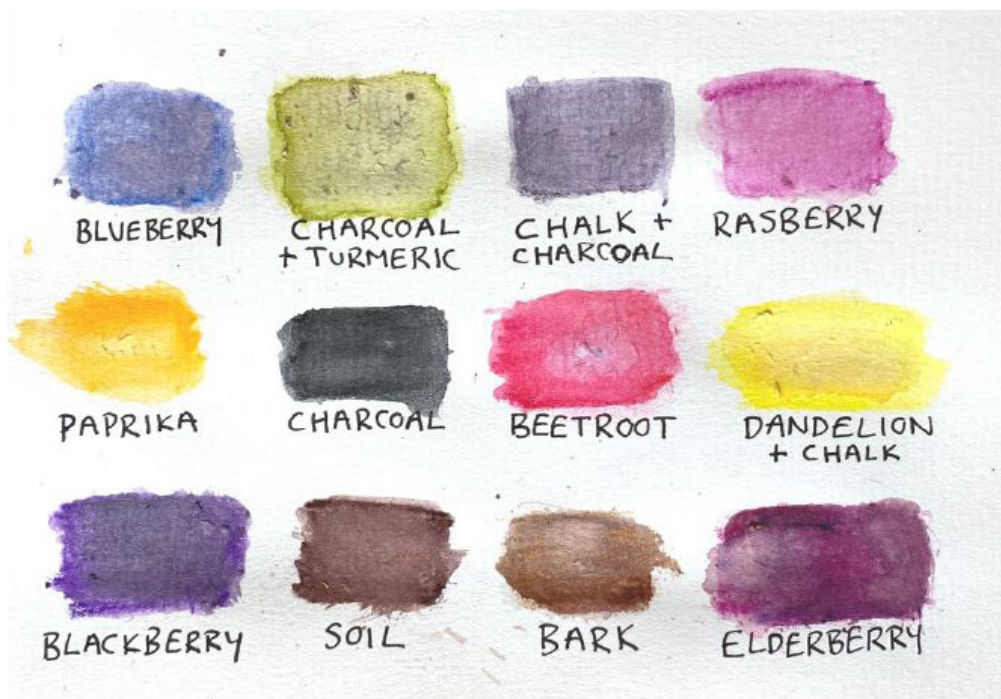 BLUEBERRY
CHARCOAL
+ TURMERIC
CHALK +
CHARCOAL
RASBERRY
PAPRIKA
CHARCOAL
BEETROOT
DANDELION
+ CHALK
BLACKBERRY
SOIL
BARK
ELDERBERRY